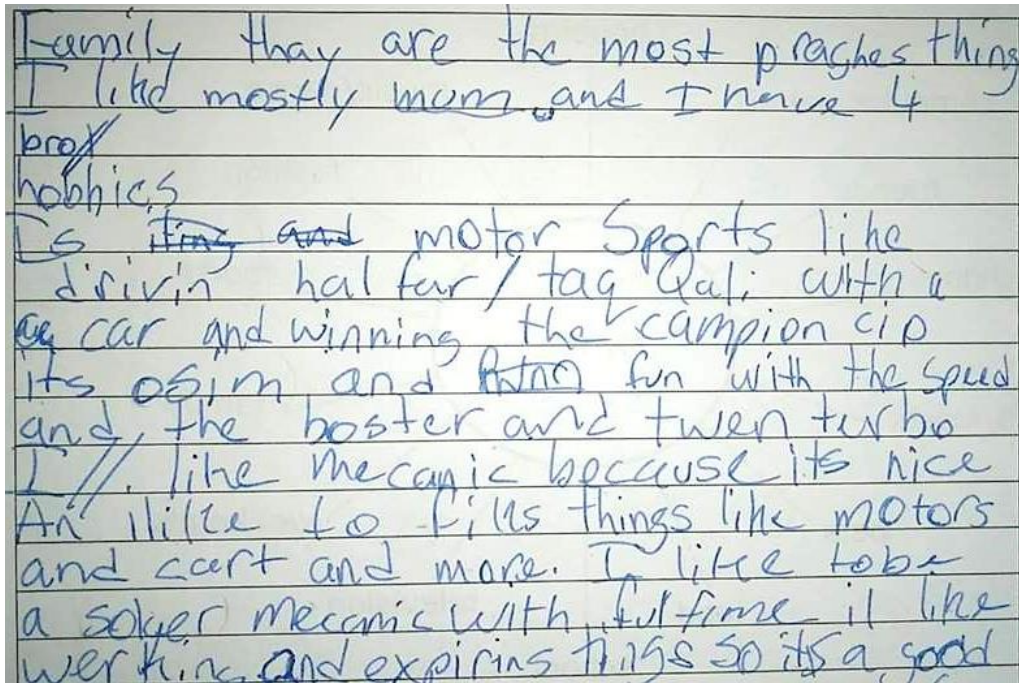 Family thay are the most praghes thing
I like mostly mum and I have 4
bro
hobbies
Is motor Sports like
dirivin hal far / taq Qali with a
car and winning the campion cip
its osim and fun with the speed
and the boster and twen turbo
I like mecanic because its nice
An ilike to fills things like motors
and cart and more. I like tobe
a solyer mecanic with fultime il like
werking and expirins things so its a good